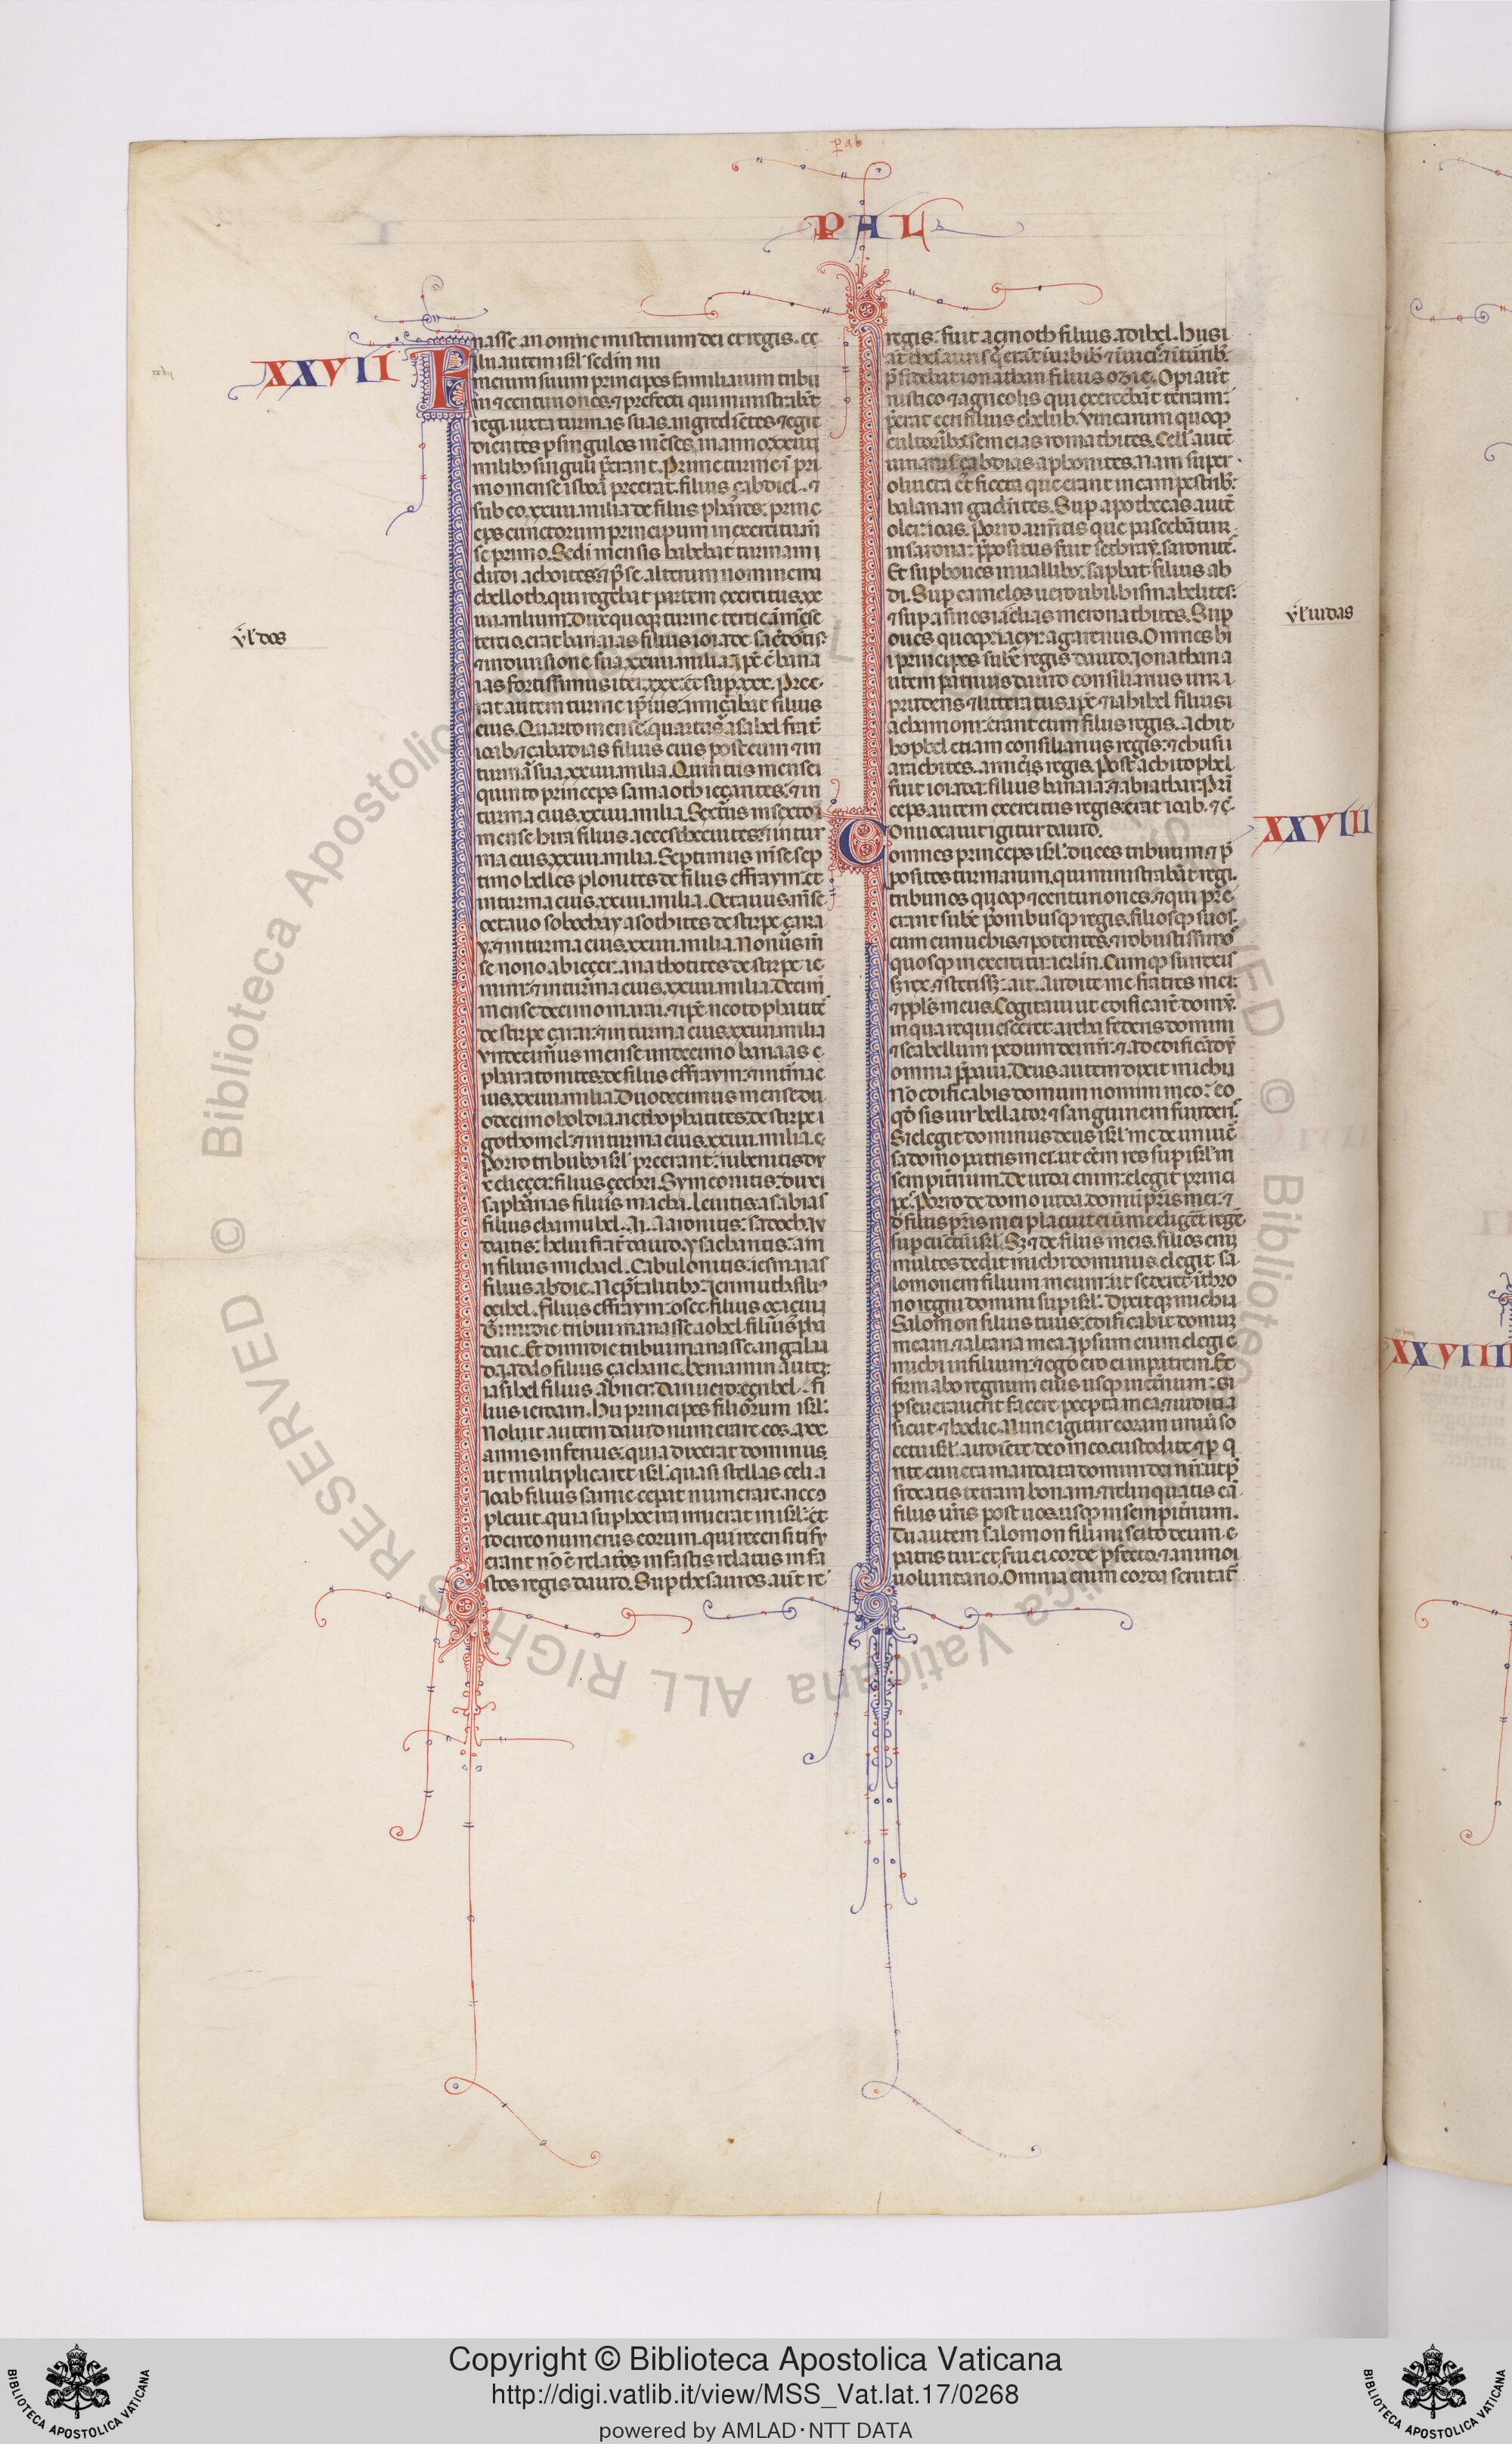 pab
PAL
XXVII
nasse in omne misterium dei et regis. ce
Filii autem isrl' sedm nu
merum suum principes familiarum tribu
ni et centuriones. et prefecti qui ministrabāt
regi iuxta turmas suas. ingrediētes et egre
dientes p singulos mēses in anno. xxiiii
milibȝ singuli p̄erant. Prime turme ī pri
mo mense isboā preerat. filius çabdiel. et
sub eo. xxiiii. milia de filiis phares. princ
eps cunctorum principum in exercitu m̄
se primo. Sedi mensis habebat turmam
dudi achoites. et p̄' se alterum nomine m
chelloth. qui regebat partem exercitus. xx
iiii. milium. Dux quoqȝ turme tertie ī mēse
tertio. erat banaias filius ioiade sac̄dotis.
ūl' dos
et in diuisione sua. xxiiii. milia. Ipē ē bana
ias fortissimus inter. xxx. et sup. xxx. Pree
rat autem turme ip̄ius. amiçabat filius
eius. Quarto mense. quartus asahel frat̄
ioab. et çabadias filius eius post eum. et in
turma sua. xxiiii. milia. Quintus mense
quinto princeps samaoth ieçarites. et in
turma eius. xxiiii. milia. Sextus in sexto
mense hira filius acces thecuites. et in tur
ma eius. xxiiii. milia. Septimus mēse sep
timo helles plonites de filiis effraym. et
in turma eius. xxiiii. milia. Octauus mēse
octauo sobochay asothites de stirpe çara
y. et in turma eius. xxiiii. milia. Nonus m̄
se nono abieçer. anathotites de stirpe ie
mini. et in turma eius. xxiiii. milia. Decim'
mense decimo marai. et ipē neotophatite
de stirpe çarai. et in turma eius. xxiiii. milia
Vndecimus mense undecimo banaias
pharatonites. de filiis effraym. et in turma e
ius. xxiiii. milia. Duodecimus mense du
odecimo holdia. nethophatites. de stirpe
gothoniel. et in turma eius. xxiiii. milia.
Porro tribubȝ isrl' preerant. rubenitis du
x elieçer. filius çechri. Symeonitis. dux
saphatias filius macha. leuitis. asabias
filius chamuhel. Aaronitis. sadoch. ay
daitis. heliu frat̄ dauid. ysachantis. am
ri filius michael. Çabulonitis. iesmaias
filius abdie. Neptalitibȝ. Ierimuth filiꝰ
ocihel. filius effraym. osee. filius oçaçiu
Dimidie tribui manasse. iohel. filius pha
daie. Et dimidie tribui manasse in galaa
d. iaddo filius çacharie. beniamin autem.
iasihel filius abner. Dan uero. eçrihel. fi
lius ieroam. Hii principes filiorum isrl'.
Noluit autem dauid numerare eos. a xx
annis inferius. quia dixerat dominus.
ut multiplicaret isrl' quasi stellas celi.
Ioab filius saruie cepit numerare. nec co
pleuit. quia sup hoc ira irruerat in isrl'. et
idcirco numerus eorum. qui recensiti fu
erant nō ē relatus in fastis relatus in fa
stos regis dauid. Sup thesauros. aut̄ re
regis. fuit açmoth filius adihel. Husi
aūt thesauris q̄ erāt ī urbibȝ et ī uicis et ī turribȝ.
p̄sidebat ionathan filius ozie. Opi aut̄
rustico et agricolis qui exercebāt terram.
p̄erat ecri filius chelub. Vinearum quoqȝ
cultoribȝ. semeias romathites. Cell' autē
uinariis. çabdias aphonites. Nam super
oliueta et ficeta que erant in campestribȝ.
balanan gadites. Sup apothecas autē
olei. ioas. Porro armētis que pascebātur
in sarona. p̄positus fuit sethray. saronitē.
Et sup boues in uallibȝ. saphat filius ab
di. Sup camelos uero ubil. hismahelites.
et sup asinos iadias meronathites. Sup
ūl' iudas
oues quoqȝ. iaçyr. agarenus. Omnes hi
i principes subē regis dauid. Ionathan a
utem patruus dauid consiliarius uir
prudens et litteratus. ipē et iahihel filius
achamoni. erant cum filiis regis. achit
hophel etiam consiliarius regis. et chusii
arachites. amicus regis. Post achitophel.
fuit ioiada. filius banaia. et abiathar. Prī
ceps autem exercitus regis. erat ioab. et c̄
XXVIII
Conuocauit igitur dauid.
omnes princeps isrl'. duces tribuum. et p̄
positos turmarum. qui ministrabāt regi.
tribunos quoqȝ et centuriones. et qui pre
erant subē p̄onibusqȝ regis. filiosqȝ suos.
cum eunuchis. et potentes. et robustissimos
quosqȝ in exercitu ierlm. Cumqȝ surrexis
sȝ rex. et stetissȝ. ait. Audite me fratres mei.
et ppl's meus. Cogitaui ut edificarē domū.
in qua requiesceret archa federis domini
et scabellum pedum dei nr̄i. et ad edificādū
omnia p̄paui. Deus autem dixit michi
Nō edificabis domum nomini meo. eo
qd' sis uir bellator et sanguinem fuderis.
S; elegit dominus deus isrl' me de uniuē
sa domo patris mei. ut eēm rex sup isrl' in
sempit̄num. De iuda enim. elegit princi
pe. Porro de domo iuda. domū p̄ris mei. et
d' filiis p̄ris mei placuit ei ut me eligēt regē
sup cūctū isrl'. Sȝ et de filiis meis. filios eniȝ
multos dedit michi dominus. elegit sa
lomonem filium meum. ut sederet ī thro
no regni domini sup isrl'. Dixitqȝ michi
Salomon filius tuus. edificabit domuȝ
meam. et altaria mea. Ipsum enim elegi
michi in filium. et ego ero ei in patrem. Et
firmabo regnum eius usqȝ in et̄num. si
p̄seuerauerit facere p̄cepta mea. et iudicia
sicut et hodie. Nunc igitur coram uniūso
cetu isrl'. audiēte deo nr̄o. custodite. et p̄ q
rite cuncta mandata domini dei nr̄i. ut p̄
sideatis terram bonam. et relinquatis eā
filiis ur̄is post uos. usqȝ in sempit̄num.
Tu autem salomon fili mi. scito deum
patris tui. et serui ei corde p̄fecto. et animo
uoluntario. Omnia enim corda scrutat̄
XXVIIII
Copyright © Biblioteca Apostolica Vaticana
http://digi.vatlib.it/view/MSS_Vat.lat.17/0268
powered by AMLAD·NTT DATA
BIBLIOTECA APOSTOLICA VATICANA
BIBLIOTECA APOSTOLICA VATICANA